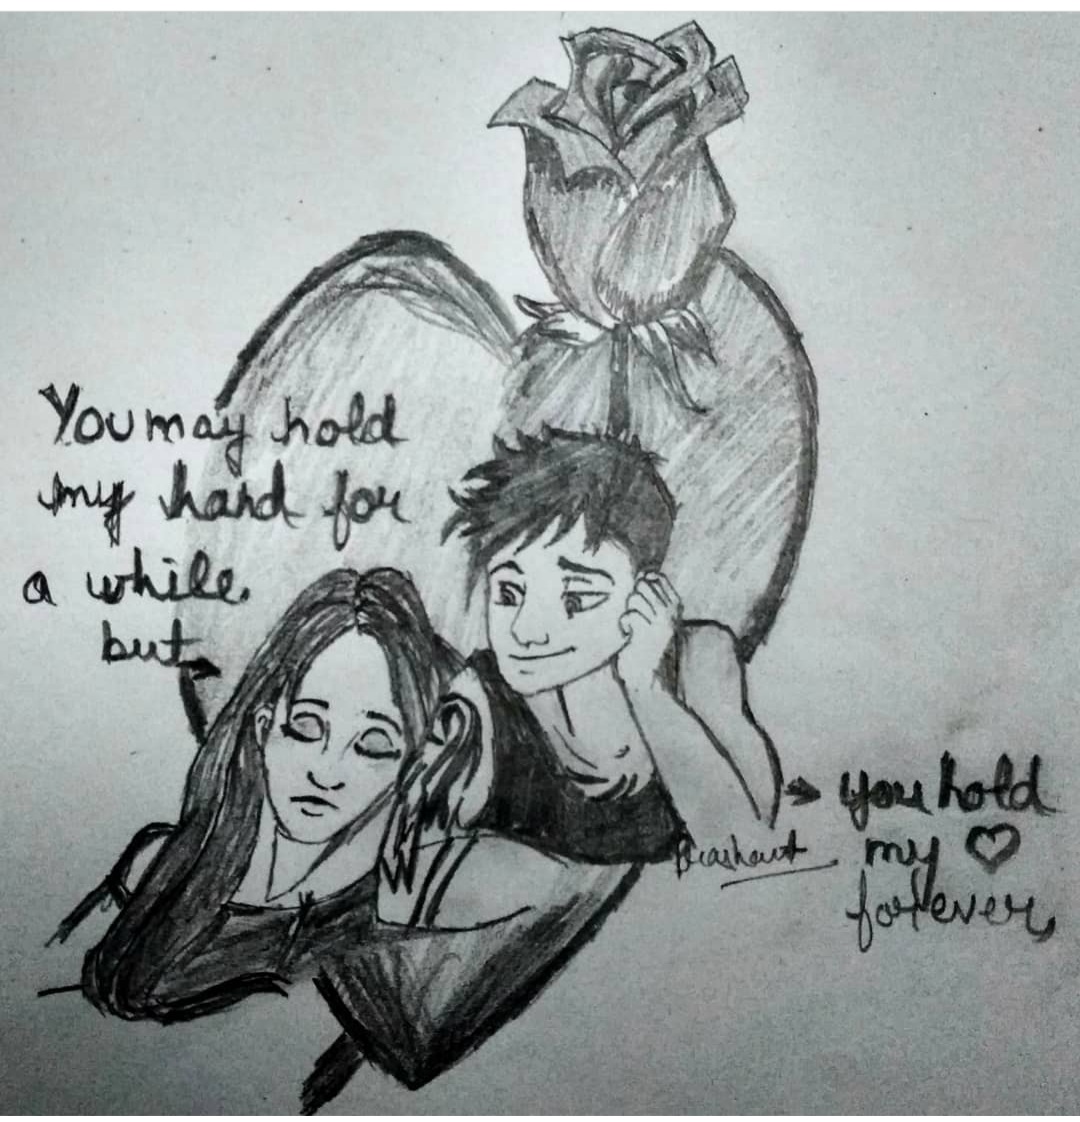 You may hold
my hand for
a while
but →
→ you hold
my ♡
forever
Prashant